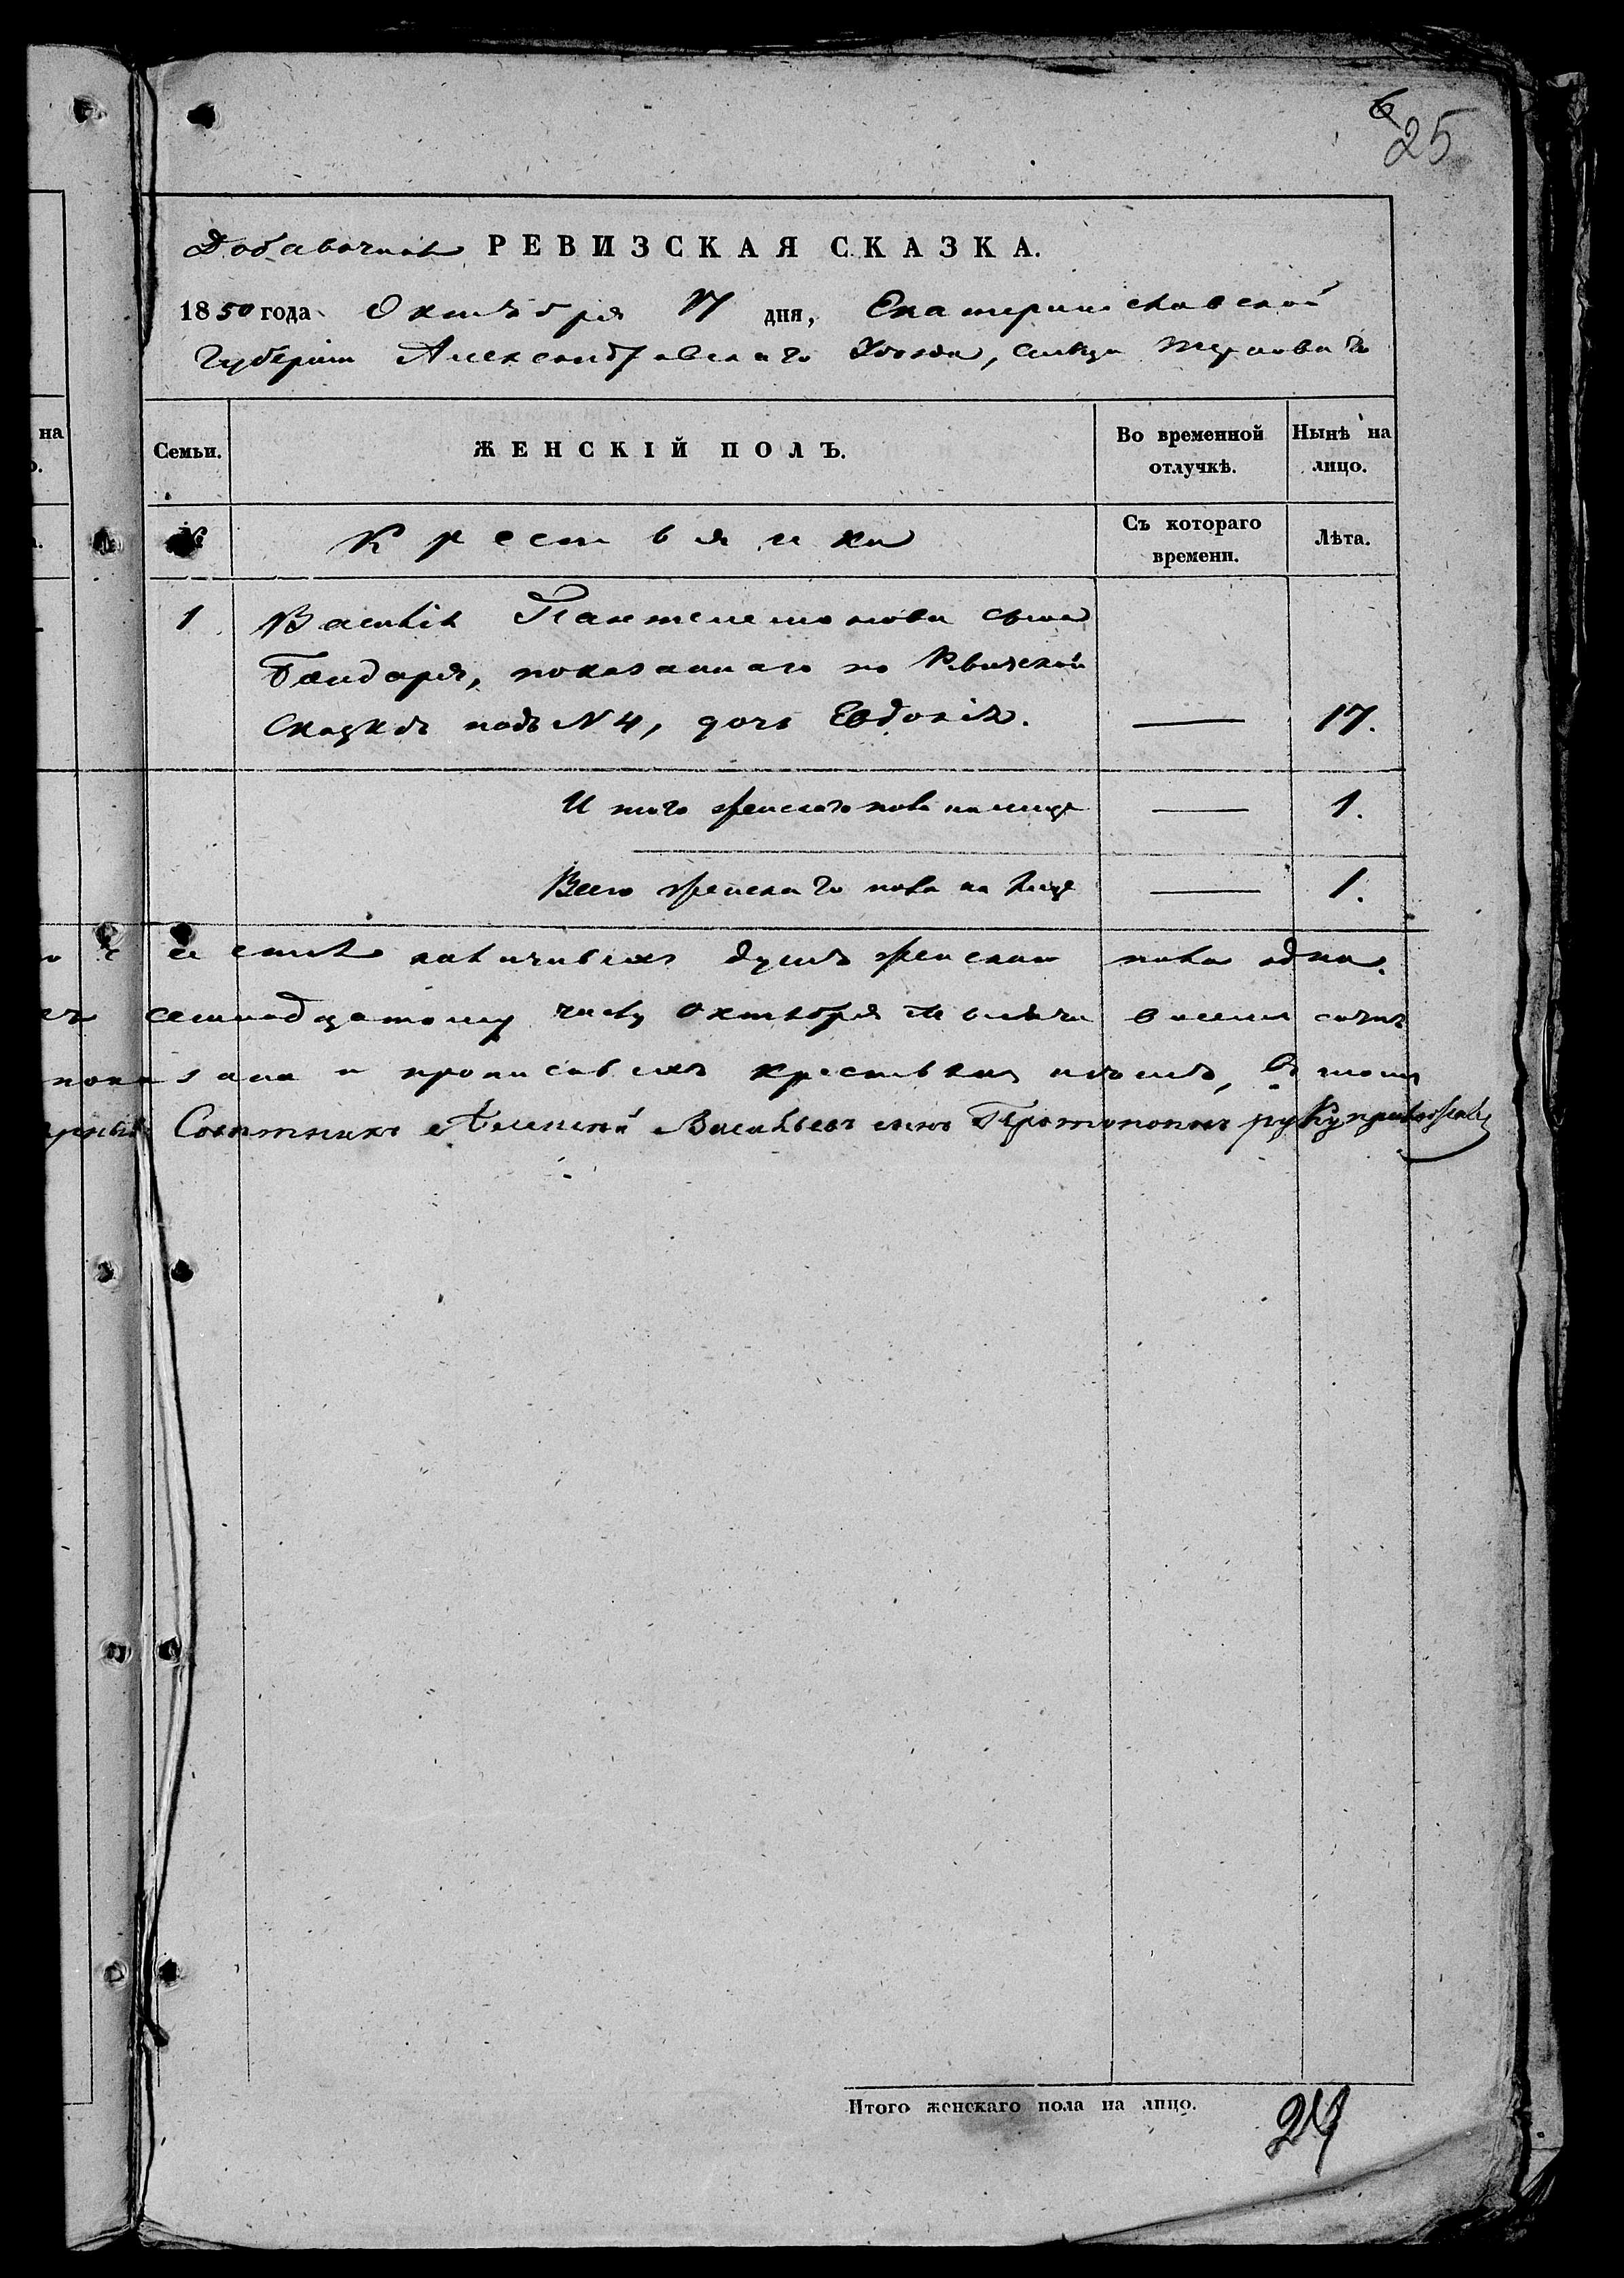 6
25
Добавочная РЕВИЗСКАЯ СКАЗКА.
1850 года Октября 17 дня, Екатеринославской
Губерніи Александровскаго Уѣзда, сельца Терноваго
на
Семьи.
ЖЕНСКІЙ ПОЛЪ.
Во временной отлучкѣ.
Нынѣ на лицо.
№
Крестьянки
Съ котораго времени.
Лѣта.
1
Василія Пантелемонова сына
Бандаря, показаннаго по Ревизской
Сказкѣ подъ № 4, дочь Евдокія. — 17.
Итого женскаго пола на лице — 1.
Всего женскаго пола на лице — 1.
наличныхъ душъ женскаго пола одна.
семнадцатому числу Октября тысяча восемь сотъ
показана и прописныхъ крестьянъ нѣтъ, въ томъ
Совѣтникъ Алексѣй Васильевъ сынъ Протопоповъ руку приложилъ
Итого женскаго пола на лицо.
24